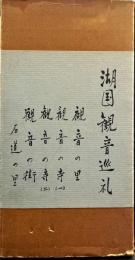 湖国観音巡礼
観音の里
観音の寺(一)
観音の寺(二)
観音の街
石道の里